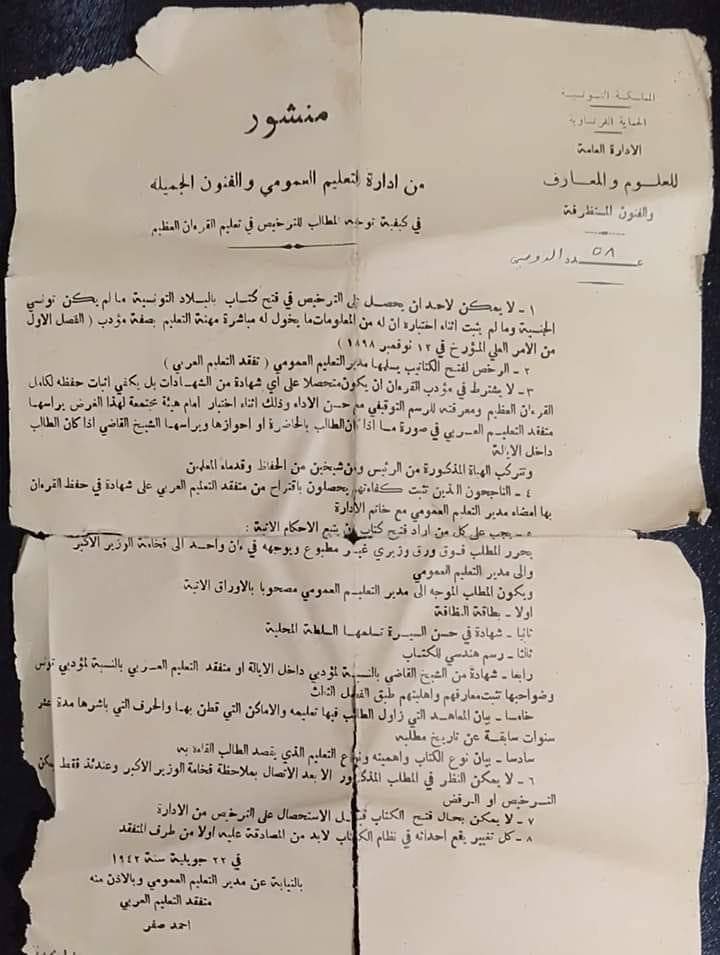 المملكة التونسية
الحماية الفرنساوية
الادارة العامة
للعلوم والمعارف
والفنون المستظرفة
عدد الدوسي ٥٨
منشور
من ادارة التعليم العمومي والفنون الجميلة
في كيفية توجيه المطالب للترخيص في تعليم القرءان العظيم
١ - لا يمكن لاحد ان يحصل على الترخيص في فتح كتاب بالبلاد التونسية ما لم يكن تونسي
الجنسية وما لم يثبت اثناء اختباره ان له من المعلومات ما يخول له مباشرة مهنة التعليم بصفة مؤدب ( الفصل الاول
من الامر العلي المؤرخ في ١٢ نوفمبر ١٨٩٨ )
٢ - الرخص لفتح الكتاتيب يسلمها مدير التعليم العمومي ( تفقد التعليم العربي )
٣ - لا يشترط في مؤدب القرءان ان يكون متحصلا على اي شهادة من الشهادات بل يكفي اثبات حفظه لكامل
القرءان العظيم ومعرفته للرسم التوقيفي مع حسن الاداء وذلك اثناء اختبار امام هيئة مجتمعة لهذا الغرض يراسها
متفقد التعليم العربي في صورة ما اذا كان الطالب بالحاضرة او احوازها ويراسها الشيخ القاضي اذا كان الطالب
داخل الايالة
وتتركب الهياة المذكورة من الرئيس ومن شيخين من الحفاظ وقدماء المعلمين
٤ - الناجحون الذين تثبت كفاءتهم يحصلون باقتراح من متفقد التعليم العربي على شهادة في حفظ القرءان
بها امضاء مدير التعليم العمومي مع خاتم الادارة
٥ - يجب على كل من اراد فتح كتاب ان يتبع الاحكام الاتية :
يحرر المطلب فوق ورق وزيري غير مطبوع ويوجهه في ءان واحد الى فخامة الوزير الاكبر
والى مدير التعليم العمومي
ويكون المطلب الموجه الى مدير التعليم العمومي مصحوبا بالاوراق الاتية
اولا - بطاقة النظافة
ثانيا - شهادة في حسن السيرة تسلمها السلطة المحلية
ثالثا - رسم هندسي للكتاب
رابعا - شهادة من الشيخ القاضي بالنسبة لمؤدبي داخل الايالة او متفقد التعليم العربي بالنسبة لمؤدبي تونس
وضواحيها تثبت معارفهم واهليتهم طبق الفصل الثالث
خامسا - بيان المعاهد التي زاول الطالب فيها تعليمه والاماكن التي قطن بها والحرف التي باشرها مدة عشر
سنوات سابقة عن تاريخ مطلبه
سادسا - بيان نوع الكتاب واهميته ونوع التعليم الذي يقصد الطالب القاءه به
٦ - لا يمكن النظر في المطلب المذكور الا بعد الاتصال بملاحظة فخامة الوزير الاكبر وعندئذ فقط يمكن
الترخيص او الرفض
٧ - لا يمكن بحال فتح الكتاب قبل الاستحصال على الترخيص من الادارة
٨ - كل تغيير يقع احداثه في نظام الكتاب لابد من المصادقة عليه اولا من طرف المتفقد
في ٢٢ جويلية سنة ١٩٤٢
بالنيابة عن مدير التعليم العمومي وبالاذن منه
متفقد التعليم العربي
احمد صفر